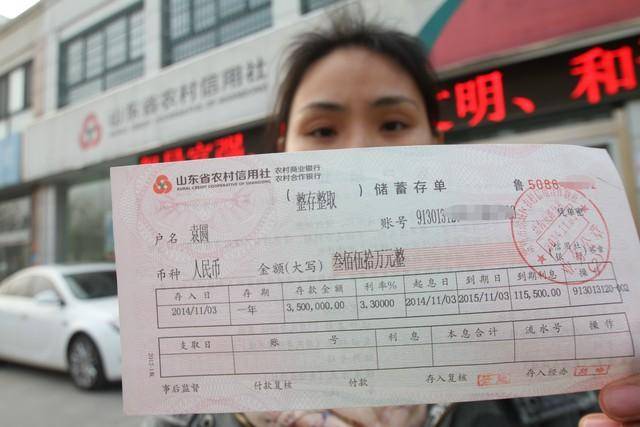 山东省农村信用社
RURAL CREDIT COOPERATIVE OF SHANDONG
文明、和
山东省农村信用社 农村商业银行
农村合作银行
RURAL CREDIT COOPERATIVE OF SHANDONG
(整存整取) 储蓄存单 鲁 5086
户名 袁圆 账号 913013120
币种 人民币 金额(大写) 叁佰伍拾万元整
存入日 存期 存款金额 利率% 起息日 到期日 到期利息 操作
2014/11/03 一年 3,500,000.00 3.30000% 2014/11/03 2015/11/03 115,500.00 913013120-002
支取日 账号 利息 本息合计 流水号 操作
事后监督 付款复核 付款 存入复核 存入经办